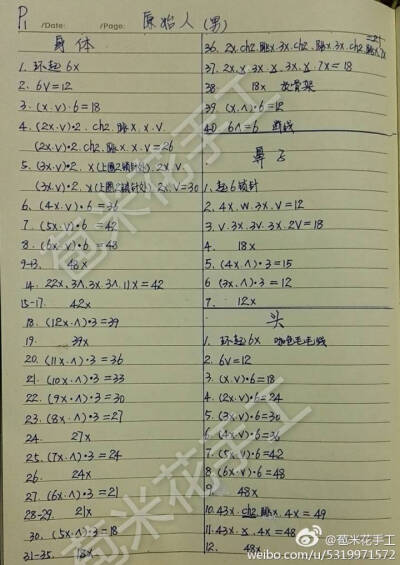 P1 /Date: /Page: 原始人(男)
身体
1. 环起6x
2. 6V=12
3. (x.v)·6=18
4. (2x.v)·2. ch2. 跳x.x.v.
(2x.v)·2. ch2. 跳x.x.v=26
5. (3x.v)·2. x(上圈2锁针处) 2x.v.
(3x.v)·2. x(上圈2锁针处) 2x.v=30
6. (4x.v)·6=36
7. (5x.v)·6=42
8. (6x.v)·6=48
9-13. 48x
14. 22x.3Λ.3x.3Λ.11x=42
15-17. 42x
18. (12x.Λ)·3=39
19. 39x
20. (11x.Λ)·3=36
21. (10x.Λ)·3=33
22. (9x.Λ)·3=30
23. (8x.Λ)·3=27
24. 27x
25. (7x.Λ)·3=24
26. 24x
27. (6x.Λ)·3=21
28-29. 21x
30. (5x.Λ)·3=18
31-35. 18x
36. 2x.ch2.跳x.3x.ch2.跳x.3x.ch2.跳x.2x
=21
37. 2x.x.3x.x.3x.x.7x=18
38. 18x 放骨架
39. (x.Λ)·6=12
40. 6Λ=6 断线
鼻子
1. 起6锁针
2. 4x.w.3x.v=12
3. v.3x.3v.3x.2v=18
4. 18x
5. (4x.Λ)·3=15
6 (3x.Λ)·3=12
7. 12x
头
1. 环起6x 咖色毛毛线
2. 6V=12
3. (x.v)·6=18
4. (2x.v)·6=24
5. (3x.v)·6=30
6. (4x.v)·6=36
7. (5x.v)·6=42
8 (6x.v)·6=48
9. 48x
10. 43x.ch2.跳x.4x=49
11. 43x.x.4x=48
12. 48x
苞米花手工
苞米花手工
@苞米花手工
weibo.com/u/5319971572